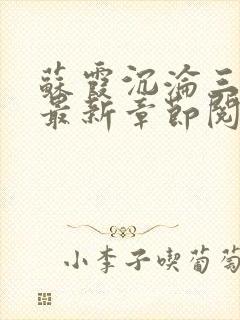 蘇霞沉淪三
最新章節閱
小李子喫葡萄